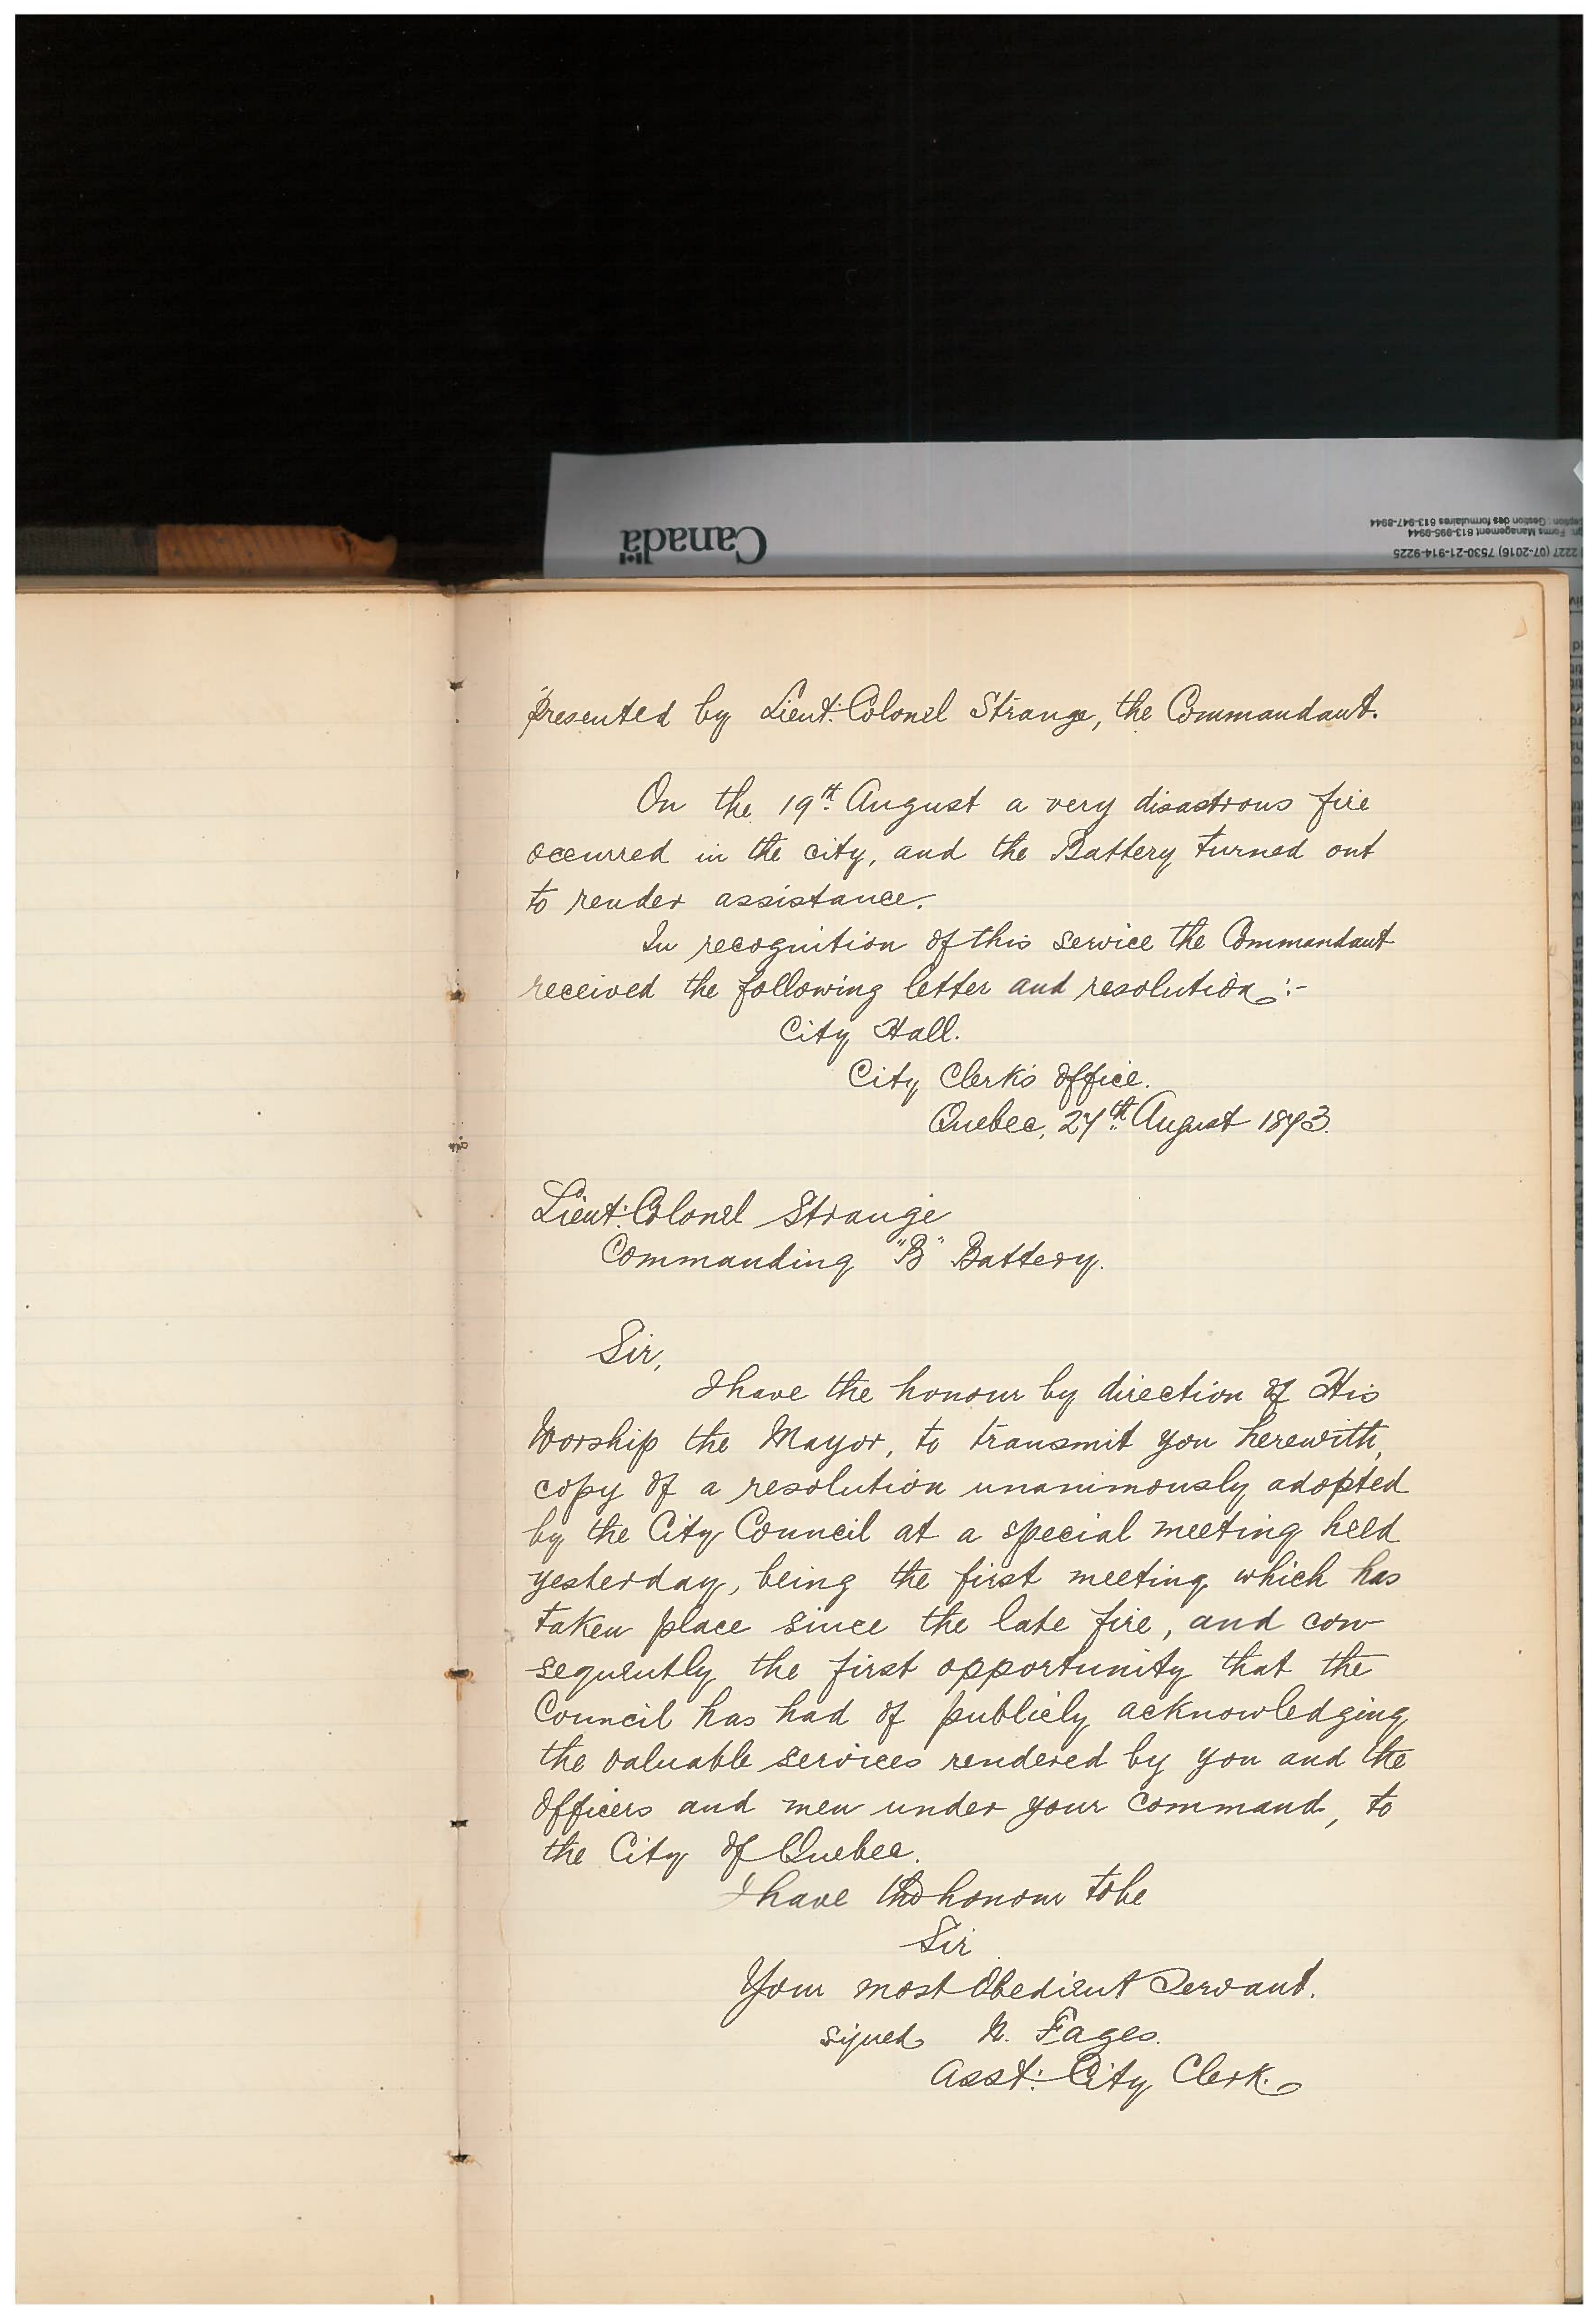 Canada
ception: Gestion des formulaires 613-947-8944
gn: Forms Management 613-995-9944
2227 (07-2016) 7530-21-914-9225
presented by Lieut: Colonel Strange, the Commandant.
On the 19th August a very disastrous fire
occurred in the city, and the Battery turned out
to render assistance.
In recognition of this service the Commandant
received the following letter and resolution:-
City Hall.
City Clerk's Office.
Quebec, 27th August 1873.
Lieut: Colonel Strange
Commanding "B" Battery.
Sir,
I have the honour by direction of His
Worship the Mayor, to transmit you herewith,
copy of a resolution unanimously adopted
by the City Council at a special meeting held
yesterday, being the first meeting which has
taken place since the late fire, and con-
sequently the first opportunity that the
Council has had of publicly acknowledging
the valuable services rendered by you and the
Officers and men under your command, to
the City of Quebec.
I have the honour to be
Sir
Your most Obedient Servant.
signed N. Fages.
Asst: City Clerk.